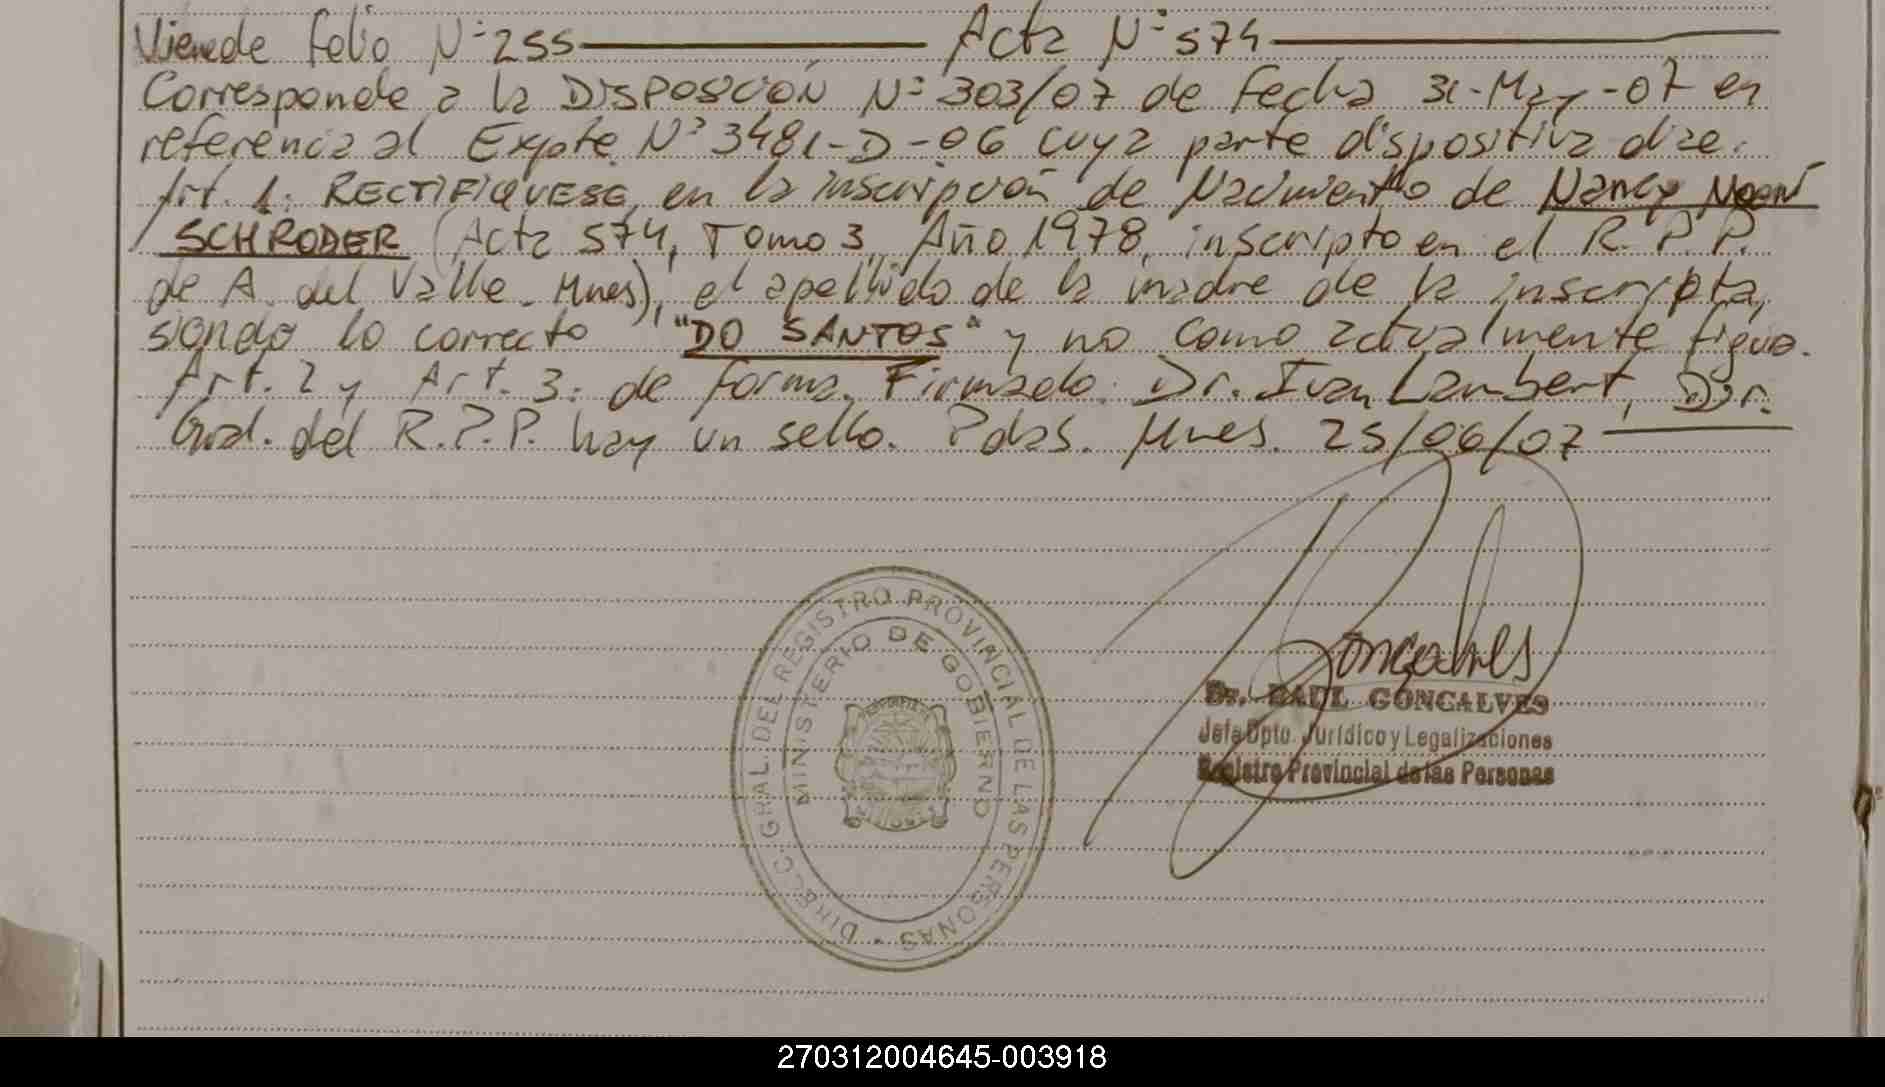 Viene de folio N° 255 ——— Acta N° 574 ———
Corresponde a la DISPOSICIÓN N° 303/07 de fecha 31-May-07 en
referencia al Expte N° 3481-D-06 cuya parte dispositiva dice:
Art. 1: RECTIFIQUESE, en la inscripción de Nacimiento de Nancy Noemí
SCHRODER (Acta 574, Tomo 3, Año 1978, inscripto en el R.P.P.
de A. del Valle - Mnes), el apellido de la madre de la inscripta,
siendo lo correcto "DO SANTOS" y no como actualmente figura.
Art. 2 y Art. 3: de forma. Firmado: Dr. Ivan Lambert, Dir.
Gral. del R.P.P. hay un sello. Pdas. Mnes. 25/06/07 ———
DIRECC. GRAL. DEL REGISTRO PROVINCIAL DE LAS PERSONAS
MINISTERIO DE GOBIERNO
Goncalves
Dr. RAUL GONCALVES
Jefe Dpto. Jurídico y Legalizaciones
Registro Provincial de las Personas
270312004645-003918